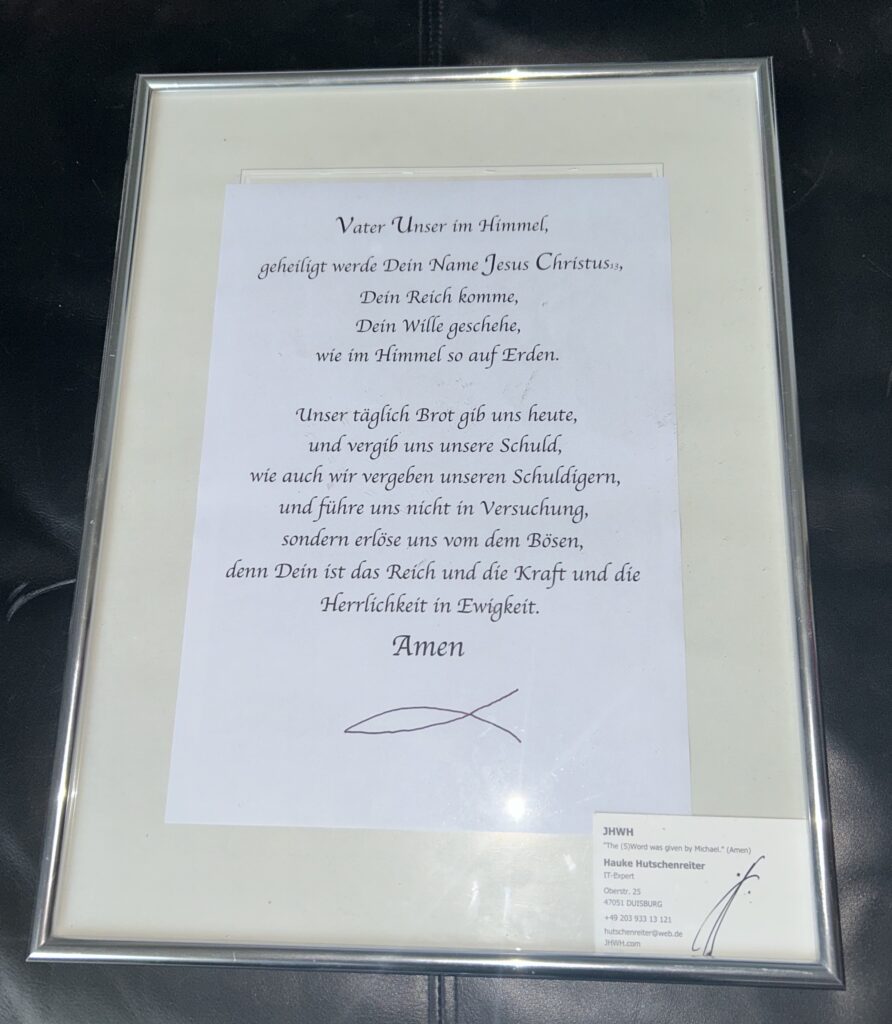 Vater Unser im Himmel,
geheiligt werde Dein Name Jesus Christus13,
Dein Reich komme,
Dein Wille geschehe,
wie im Himmel so auf Erden.
Unser täglich Brot gib uns heute,
und vergib uns unsere Schuld,
wie auch wir vergeben unseren Schuldigern,
und führe uns nicht in Versuchung,
sondern erlöse uns vom dem Bösen,
denn Dein ist das Reich und die Kraft und die
Herrlichkeit in Ewigkeit.
Amen
JHWH
"The (S)Word was given by Michael." (Amen)
Hauke Hutschenreiter
IT-Expert
Oberstr. 25
47051 DUISBURG
+49 203 933 13 121
hutschenreiter@web.de
JHWH.com